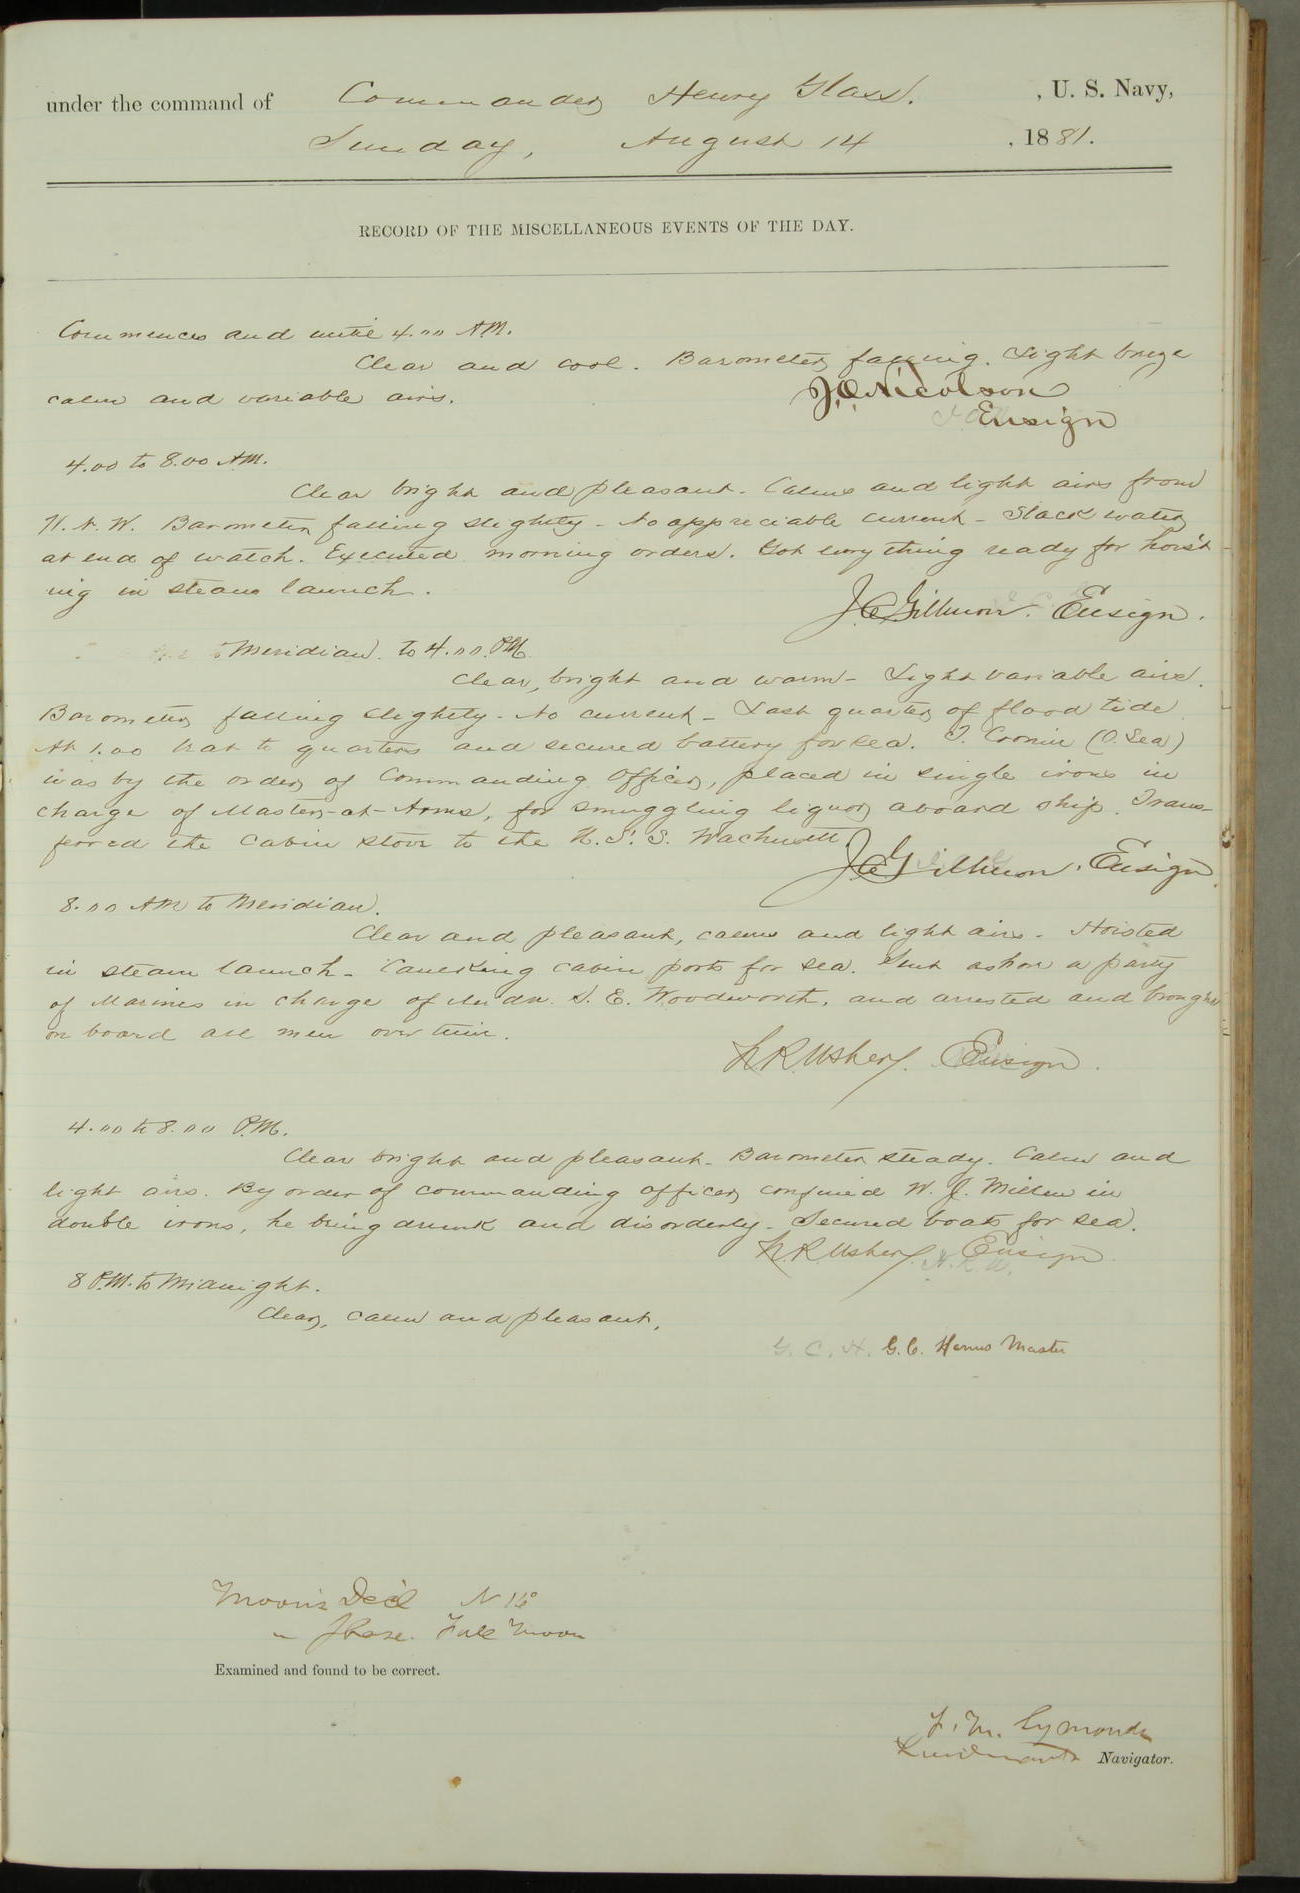 under the command of Commander Henry Glass. , U. S. Navy,
Sunday, August 14 , 1881.
RECORD OF THE MISCELLANEOUS EVENTS OF THE DAY.
Commences and until 4.00 A.M.
Clear and cool. Barometer falling. Light breeze
calm and variable airs.
J.O. Nicolson
Ensign
4.00 to 8.00 A.M.
Clear bright and pleasant. Calms and light airs from
N. N. W. Barometer falling slightly - No appreciable current - Slack water
at end of watch. Executed morning orders. Got everything ready for hoist
ing in steam launch.
J.C. Gillmor. Ensign.
Meridian. to 4.00. P.M.
Clear, bright and warm - Light variable airs.
Barometer falling slightly - No current - Last quarter of flood tide
At 1.00 beat to quarters and secured battery for sea. T. Cronin (O. Sea)
was by the order of Commanding Officer, placed in single irons in
charge of Master-at-Arms, for smuggling liquor aboard ship. Trans-
ferred the cabin stove to the U. S. S. Wachusett
J.C. Gillmor. Ensign
8.00 AM to Meridian.
Clear and pleasant, calms and light airs - Hoisted
in steam launch - Caulking cabin ports for sea. Sent ashore a party
of Marines in charge of Midn. S. E. Woodworth, and arrested and brought
on board all men over time.
N.R. Usher. Ensign.
4.00 to 8.00 P.M.
Clear bright and pleasant - Barometer steady. Calm and
light airs. By order of commanding officer confined W. J. Miller in
double irons, he being drunk and disorderly - Secured boats for sea.
N.R. Usher. Ensign
8 P.M. to Midnight.
Clear, calm and pleasant.
G. C. H. G. C. Hanus Master
Moon's Dec'l N 16°
" Phase. Full Moon
Examined and found to be correct.
F. M. Symonds
Lieutenant Navigator.